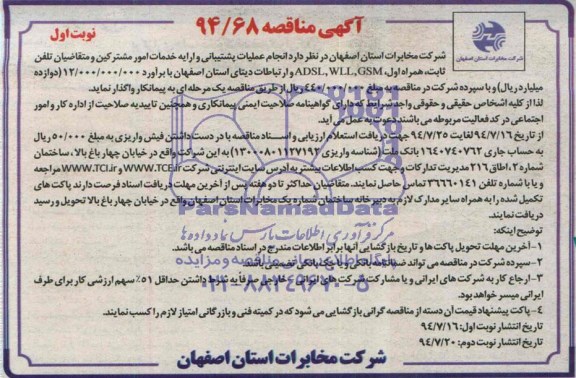 آگهی مناقصه ۹۴/۶۸
نوبت اول
شرکت مخابرات استان اصفهان
شرکت مخابرات استان اصفهان در نظر دارد انجام عملیات پشتیبانی و ارایه خدمات امور مشترکین و متقاضیان تلفن
ثابت، همراه اول، ADSL, WLL, GSM و ارتباطات دیتای استان اصفهان با برآورد ۱۲/۰۰۰/۰۰۰/۰۰۰ (دوازده
میلیارد ریال) و با سپرده شرکت در مناقصه به مبلغ ۴۴۰/۰۰۰/۰۰۰ ریال از طریق مناقصه یک مرحله ای به پیمانکار واگذار نماید.
لذا از کلیه اشخاص حقیقی و حقوقی واجد شرایط که دارای گواهینامه صلاحیت ایمنی پیمانکاری و همچنین تاییدیه صلاحیت از اداره کار و امور
اجتماعی در کد فعالیت مربوطه می باشند دعوت به عمل می آید.
از تاریخ ۹۴/۷/۱۶ لغایت ۹۴/۷/۲۵ جهت دریافت استعلام ارزیابی و اسناد مناقصه با در دست داشتن فیش واریزی به مبلغ ۵۰/۰۰۰ ریال
به حساب جاری ۱۶۴۰۷۴۰۷۶۲ بانک ملت (شناسه واریزی ۱۳۰۰۰۸۰۱۱۲۷۱۹۲) به این شرکت واقع در خیابان چهار باغ بالا، ساختمان
شماره ۲، اطاق ۲۱۶ مدیریت تدارکات و جهت کسب اطلاعات بیشتر به آدرس سایت اینترنتی شرکت WWW.TCE.ir یا WWW.TCI.ir مراجعه
و یا با شماره تلفن ۳۶۶۶۰۱۴۱ تماس حاصل نمایند. متقاضیان حداکثر تا دو هفته پس از آخرین مهلت دریافت اسناد فرصت دارند پاکت های
تکمیل شده را به همراه سایر مدارک لازم به دبیرخانه ساختمان شماره یک مخابرات استان اصفهان واقع در خیابان چهار باغ بالا تحویل و رسید
دریافت نمایند.
توضیح اینکه:
۱- آخرین مهلت تحویل پاکت ها و تاریخ بازگشایی آنها برابر اطلاعات مندرج در اسناد مناقصه می باشد.
۲- سپرده شرکت در مناقصه می تواند ضمانتنامه بانکی و یا چک بانکی تضمینی باشد.
۳- ارجاع کار به شرکت های ایرانی و یا مشارکت شرکت های ایرانی - خارجی صرفاً به شرط داشتن حداقل ۵۱٪ سهم ارزشی کار برای طرف
ایرانی میسر خواهد بود.
۴- پاکت پیشنهاد قیمت آن دسته از مناقصه گرانی بازگشایی می شود که در کمیته فنی و بازرگانی امتیاز لازم را کسب نمایند.
تاریخ انتشار نوبت اول: ۹۴/۷/۱۶
تاریخ انتشار نوبت دوم: ۹۴/۷/۲۰
شرکت مخابرات استان اصفهان
ParsNamadData
مرکز فرآوری اطلاعات پارس نماد داده ها